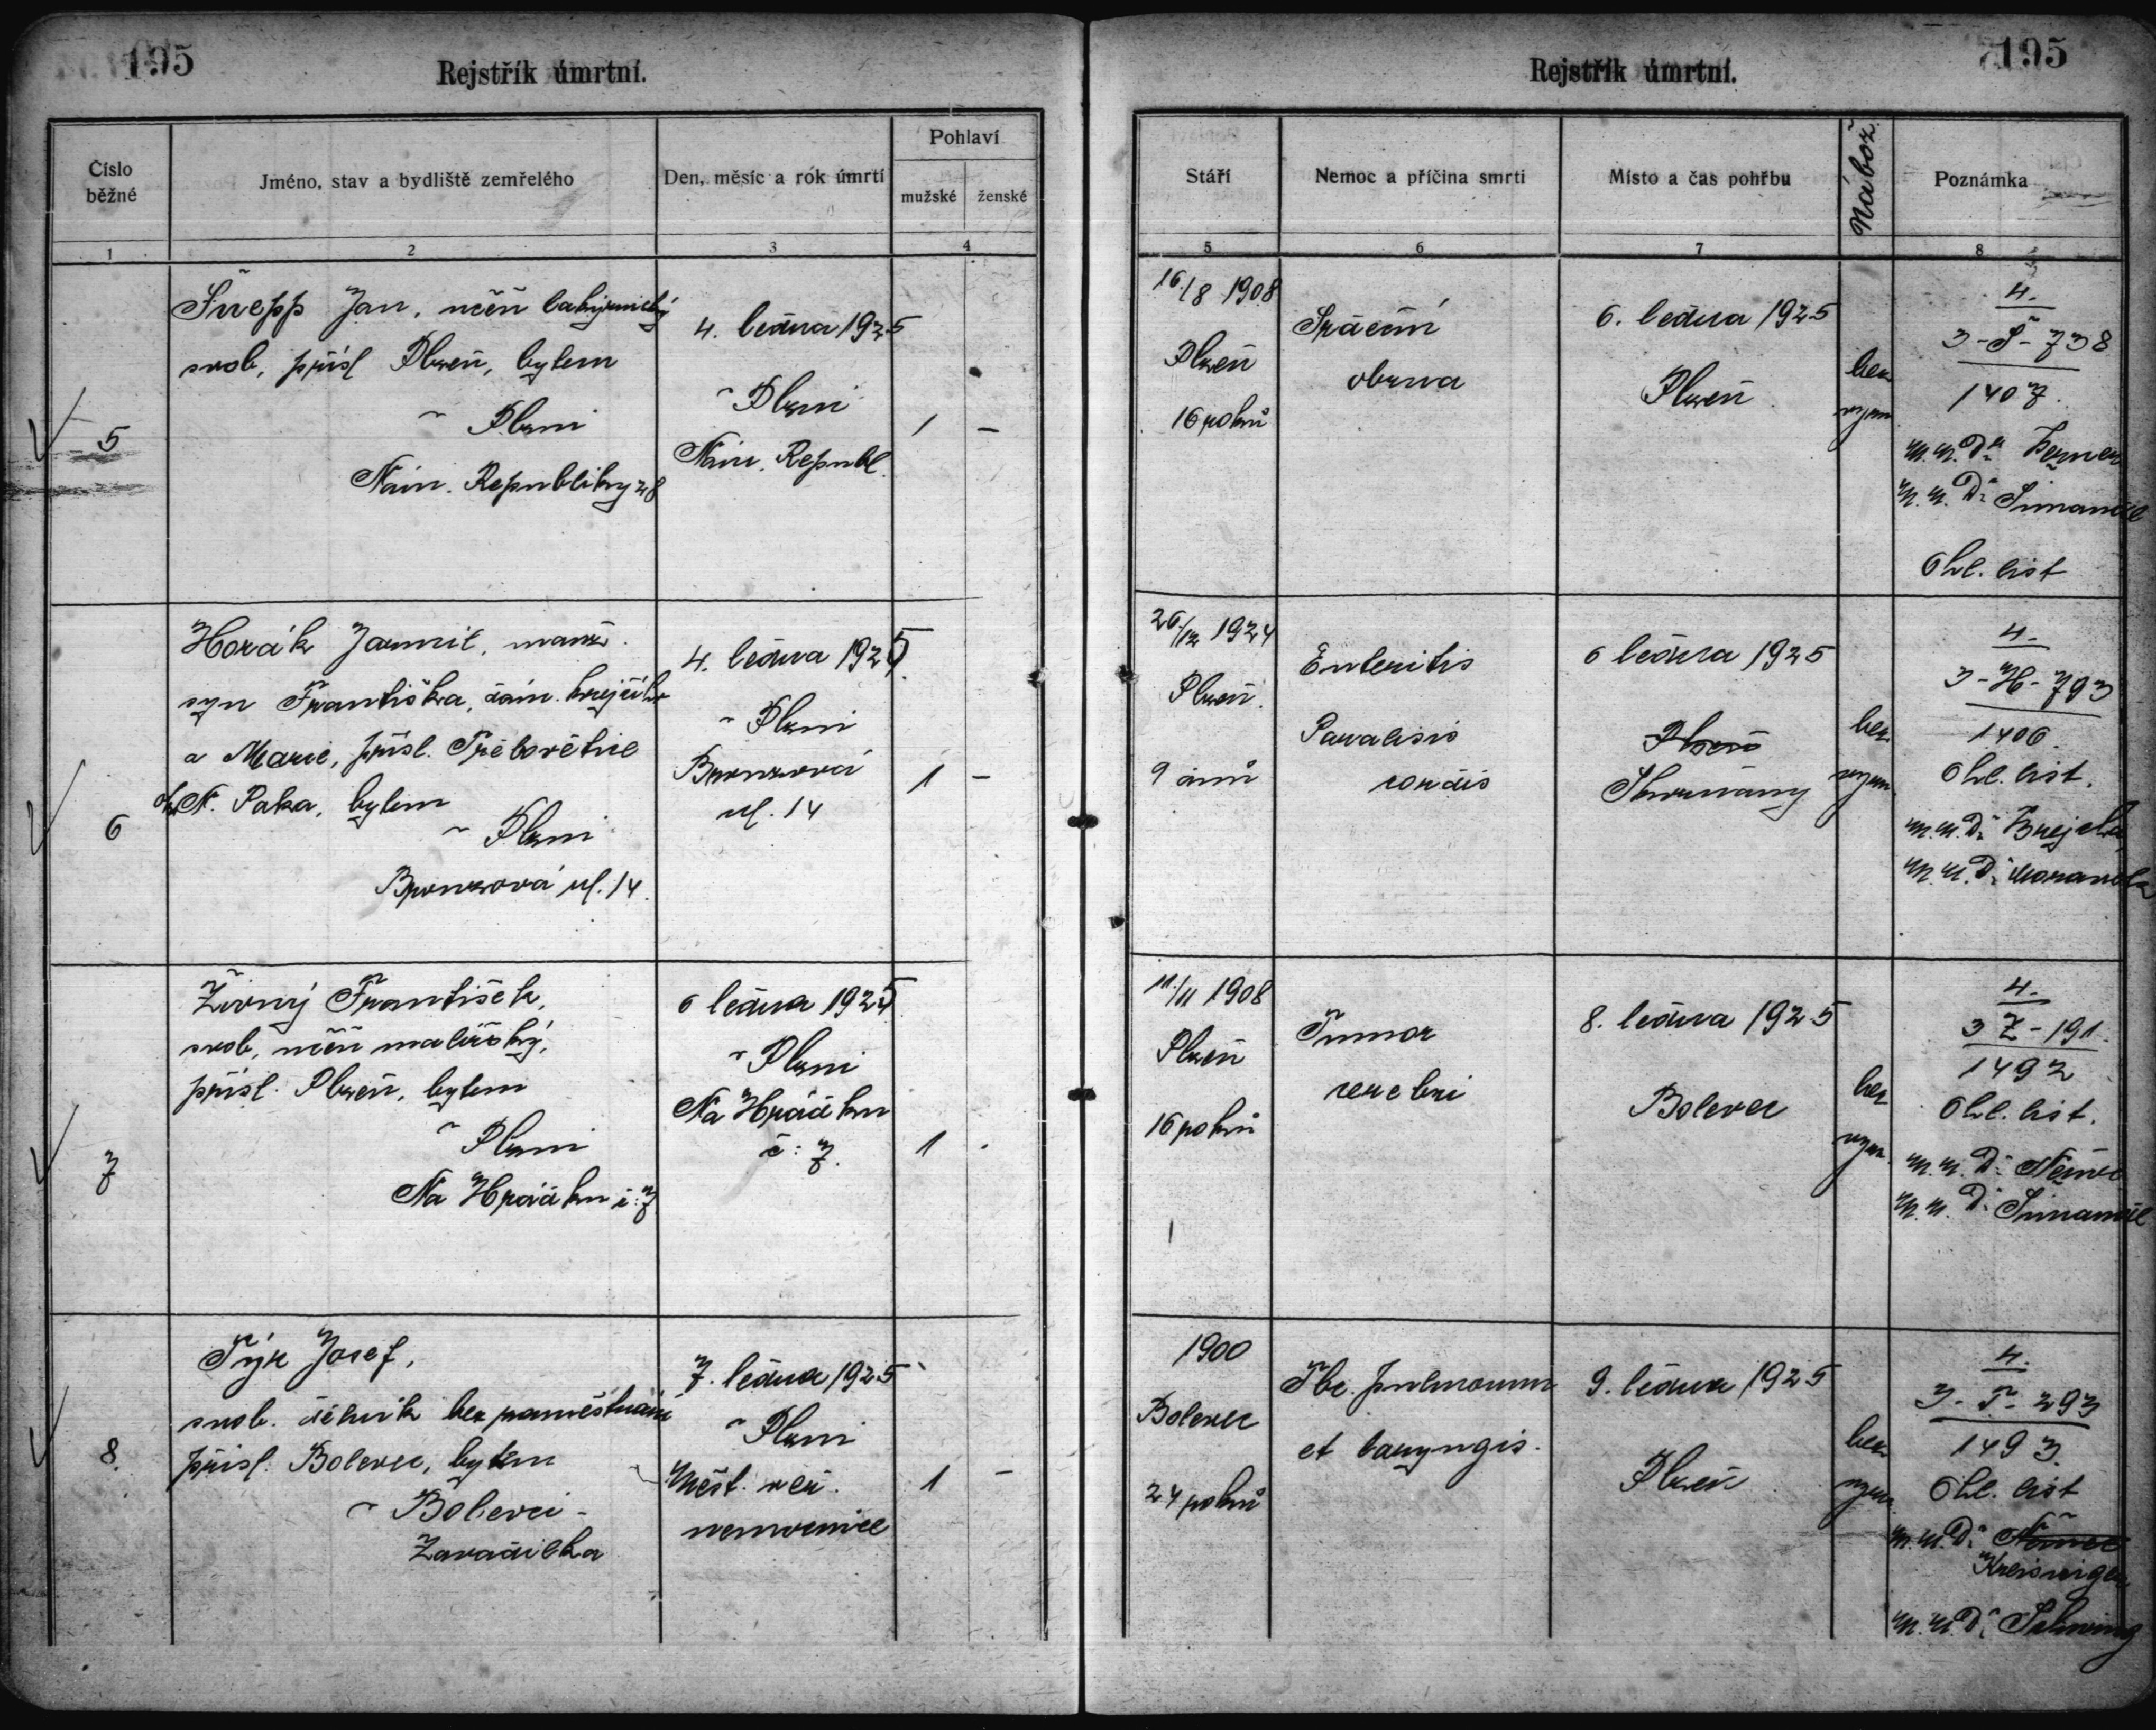 195
Rejstřík úmrtní.
Číslo běžné
Jméno, stav a bydliště zemřelého
Den, měsíc a rok úmrtí
Pohlaví
mužské
ženské
1
2
3
4
5
Švepp Jan, učeň
svob, přísl Plzeň, bytem
v Plzni
Nám. Republiky 28
4. ledna 1925
v Plzni
Nám. Republ.
1 –
6
Horák Jaromil, manž.
syn Františka, krejčího
a Marie, přísl. Třebovětice
N. Paka, bytem
v Plzni
Bronzová ul. 14.
4. ledna 1925
v Plzni
Bronzová
ul. 14
1 –
7
Živný František,
svob, učeň malířský,
přísl. Plzeň, bytem
v Plzni
Na Hrádku č: 7
6 ledna 1925
v Plzni
Na Hrádku
č: 7.
1
8.
Týr Josef,
svob. dělník bez zaměstnání
přísl. Bolevec, bytem
v Bolevci -
Zavadilka
7. ledna 1925
v Plzni
Měst. veř.
nemocnice
1 –
195
Rejstřík úmrtní.
Stáří
Nemoc a příčina smrti
Místo a čas pohřbu
Nábož.
Poznámka
5
6
7
8
16/8 1908
Plzeň
16 roků
Srdeční
obrna
6. ledna 1925
Plzeň
bez
vyzn.
4.
3-Š-738
1407.
M.U.Dr
M.U.Dr Šimandl
Ohl. list
26/12 1924
Plzeň.
9 dnů
Enteritis
Paralisis
cordis
6 ledna 1925
Plzeň
Skvrňany
bez
vyzn.
4.
3-H-793
1406.
Ohl. list.
M.U.Dr Brejcha
M.U.Dr Moravec
11/11 1908
Plzeň
16 roků
Tumor
cerebri
8. ledna 1925
Bolevec
bez
vyzn.
4.
3 Z-191.
1492
Ohl. list.
M.U.Dr Němec
M.U.Dr Šimandl
1900
Bolevec
24 roků
Tbc. pulmonum
et laryngis.
9. ledna 1925
Plzeň
bez
vyzn.
4.
3-T-293
1493.
Ohl. list
M.U.Dr Němec
Kreisinger
M.U.Dr Schwing